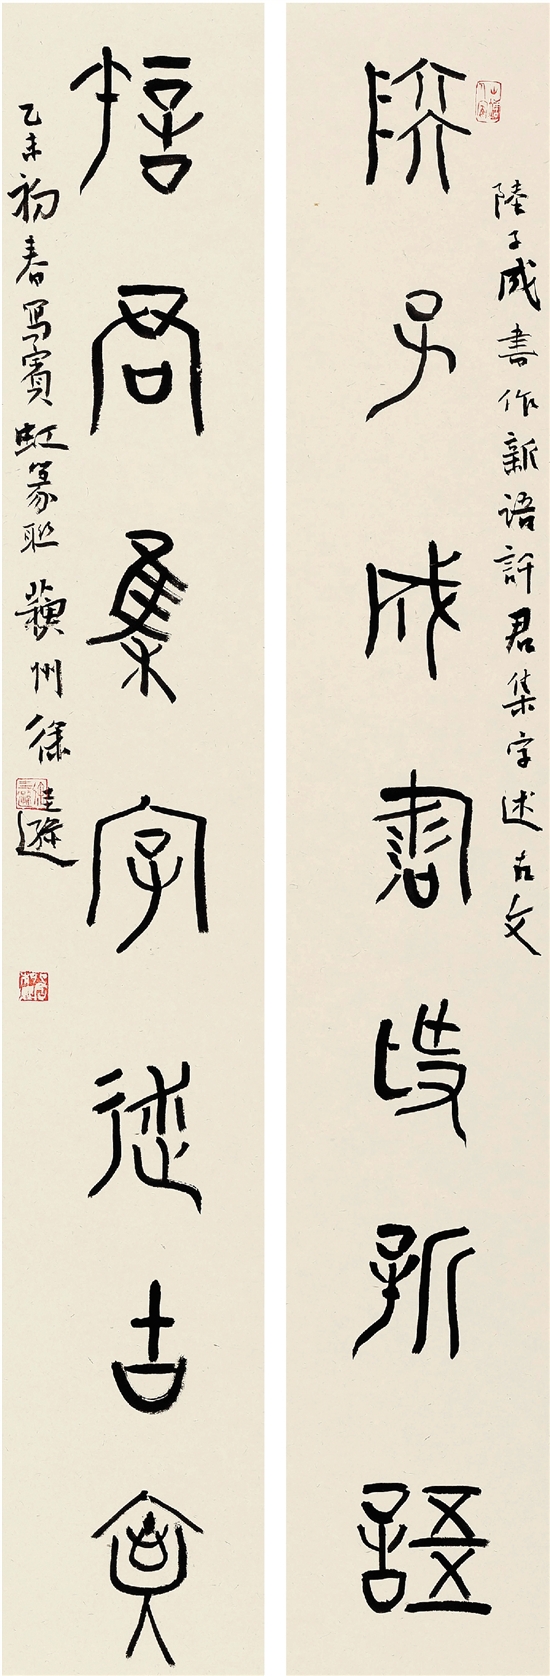 陸子成書作新語許君集字述古文
陸子成書作新語
許君集字述古文
乙未初春写賓虹篆聯蘇州徐圭遜